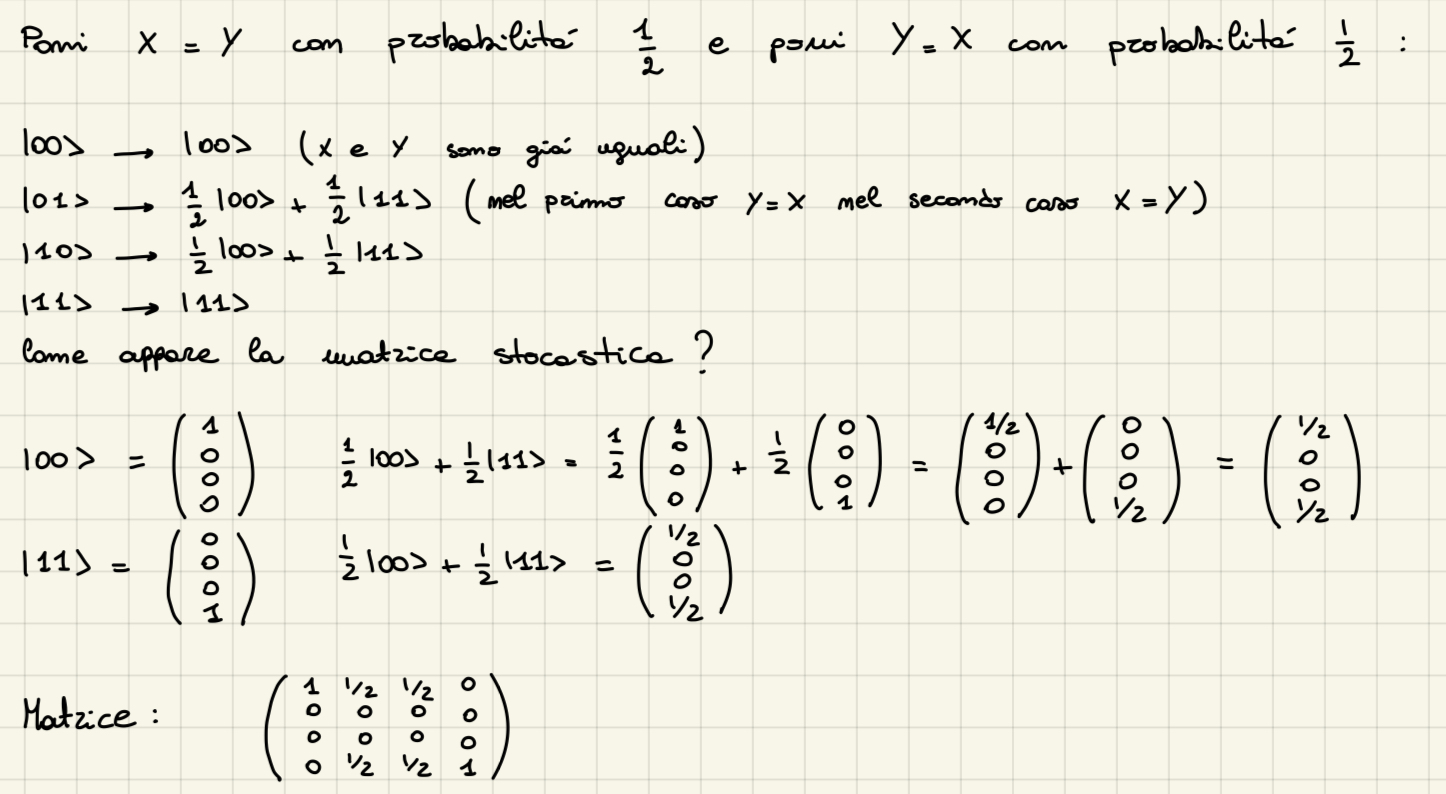 Poni X = Y con probabilitá 1/2 e poni Y = X con probabilitá 1/2 :
|00> → |00> (X e Y sono giá uguali)
|01> → 1/2 |00> + 1/2 |11> (nel primo caso Y = X nel secondo caso X = Y)
|10> → 1/2 |00> + 1/2 |11>
|11> → |11>
Come appare la matrice stocastica ?
|00> = (1 0 0 0) 1/2 |00> + 1/2 |11> = 1/2 (1 0 0 0) + 1/2 (0 0 0 1) = (1/2 0 0 0) + (0 0 0 1/2) = (1/2 0 0 1/2)
|11> = (0 0 0 1) 1/2 |00> + 1/2 |11> = (1/2 0 0 1/2)
Matrice :
1 1/2 1/2 0
0 0 0 0
0 0 0 0
0 1/2 1/2 1